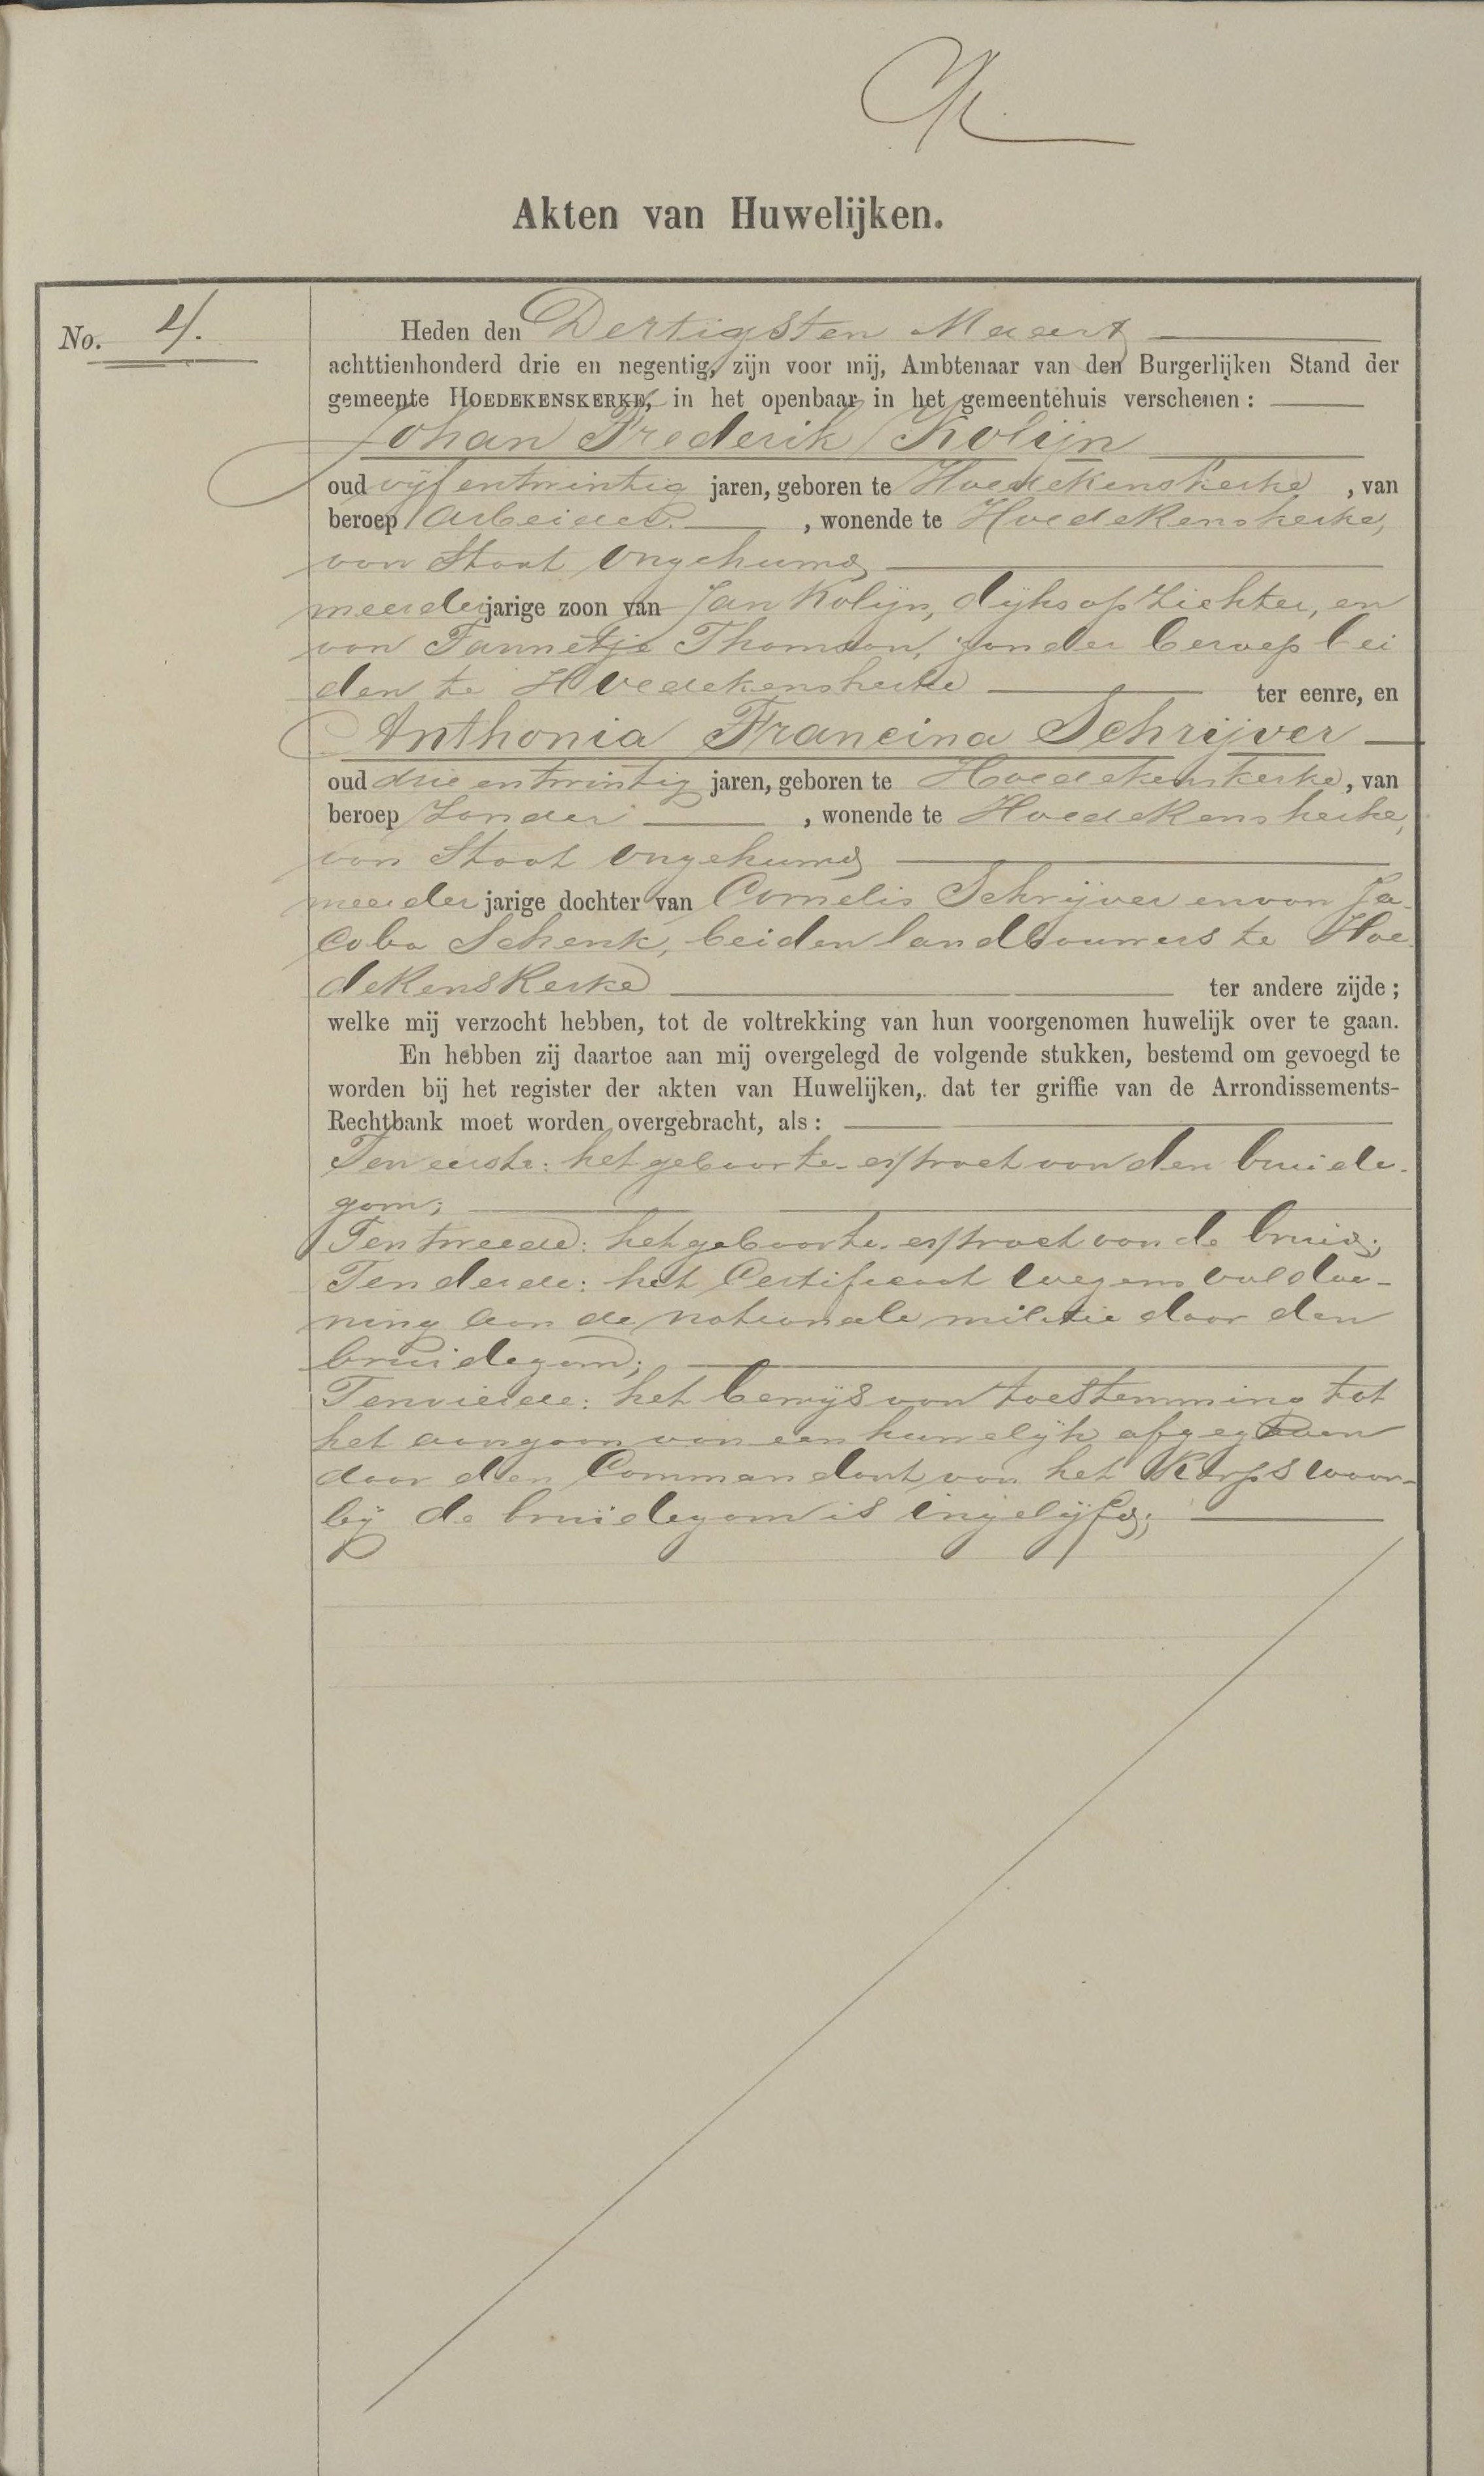 Akten van Huwelijken.
No. 4.
Heden den Dertigsten Maart
achttienhonderd drie en negentig, zijn voor mij, Ambtenaar van den Burgerlijken Stand der
gemeente HOEDEKENSKERKE, in het openbaar in het gemeentehuis verschenen :
Johan Frederik Kolijn
oud vijf en twintig jaren, geboren te Hoedekenskerke , van
beroep Arbeider. , wonende te Hoedekenskerke,
van Staat ongehuwd
meerderjarige zoon van Jan Kolijn, dijksopzichter, en
van Tannetje Thomson, zonder beroep bei
den te Hoedekenskerke ter eenre, en
Anthonia Francina Schrijver
oud drie en twintig jaren, geboren te Hoedekenskerke, van
beroep Zonder , wonende te Hoedekenskerke,
van Staat ongehuwd
meerderjarige dochter van Cornelis Schrijver en van Ja-
coba Schenk, beiden landbouwers te Hoe
dekenskerke ter andere zijde ;
welke mij verzocht hebben, tot de voltrekking van hun voorgenomen huwelijk over te gaan.
En hebben zij daartoe aan mij overgelegd de volgende stukken, bestemd om gevoegd te
worden bij het register der akten van Huwelijken, dat ter griffie van de Arrondissements-
Rechtbank moet worden overgebracht, als :
Ten eerste: het geboorte-extract van den bruide-
gom;
Ten tweede: het geboorte-extract van de bruid;
Ten derde: het Certificaat wegens voldoe-
ning aan de nationale militie door den
bruidegom;
Ten vierde: het bewijs van toestemming tot
het aangaan van een huwelijk afgegeven
door den Commandant van het Korps waar-
bij de bruidegom is ingelijfd;